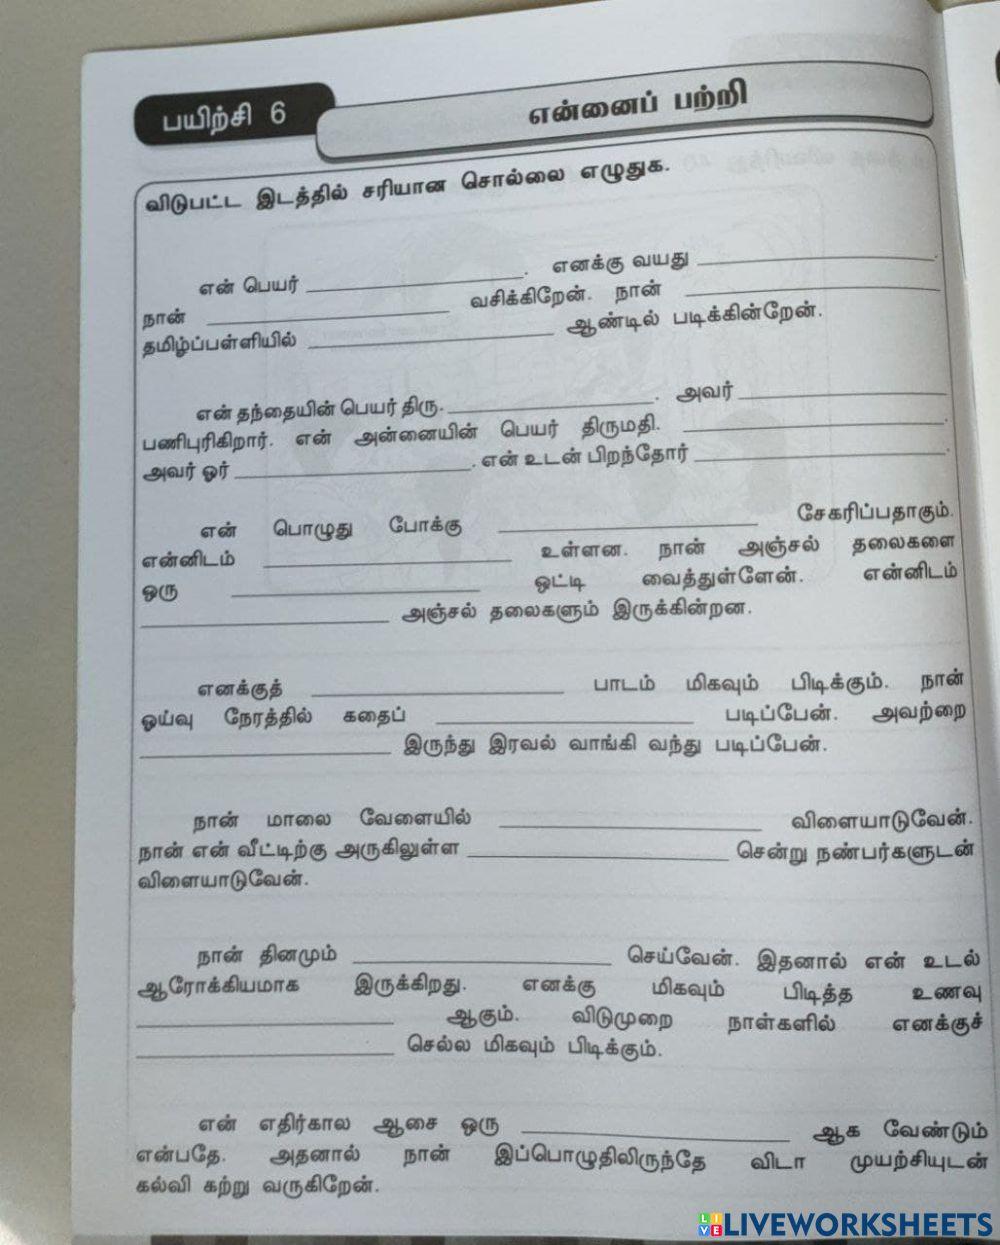 பயிற்சி 6
என்னைப் பற்றி
விடுபட்ட இடத்தில் சரியான சொல்லை எழுதுக.
என் பெயர் ____________. எனக்கு வயது ____________.
நான் ____________ வசிக்கிறேன். நான் ____________
தமிழ்ப்பள்ளியில் ____________ ஆண்டில் படிக்கின்றேன்.
என் தந்தையின் பெயர் திரு. ____________. அவர் ____________
பணிபுரிகிறார். என் அன்னையின் பெயர் திருமதி. ____________.
அவர் ஓர் ____________. என் உடன் பிறந்தோர் ____________.
என் பொழுது போக்கு ____________ சேகரிப்பதாகும்.
என்னிடம் ____________ உள்ளன. நான் அஞ்சல் தலைகளை
ஒரு ____________ ஒட்டி வைத்துள்ளேன். என்னிடம்
____________ அஞ்சல் தலைகளும் இருக்கின்றன.
எனக்குத் ____________ பாடம் மிகவும் பிடிக்கும். நான்
ஓய்வு நேரத்தில் கதைப் ____________ படிப்பேன். அவற்றை
____________ இருந்து இரவல் வாங்கி வந்து படிப்பேன்.
நான் மாலை வேளையில் ____________ விளையாடுவேன்.
நான் என் வீட்டிற்கு அருகிலுள்ள ____________ சென்று நண்பர்களுடன்
விளையாடுவேன்.
நான் தினமும் ____________ செய்வேன். இதனால் என் உடல்
ஆரோக்கியமாக இருக்கிறது. எனக்கு மிகவும் பிடித்த உணவு
____________ ஆகும். விடுமுறை நாள்களில் எனக்குச்
____________ செல்ல மிகவும் பிடிக்கும்.
என் எதிர்கால ஆசை ஒரு ____________ ஆக வேண்டும்
என்பதே. அதனால் நான் இப்பொழுதிலிருந்தே விடா முயற்சியுடன்
கல்வி கற்று வருகிறேன்.
LIVE LIVEWORKSHEETS